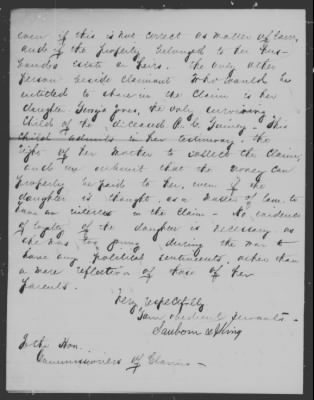 even if this is not correct as matter of law,
and if the property belonged to her hus-
band's estate or heirs. The only other
person beside claimant who would be
entitled to share in the claim is her
daughter Georgia, the only surviving
child of the deceased R. C. This
child admits in her testimony the
right of her mother to collect the claim,
and we submit that the money can
properly be paid to her, even if the
daughter is thought, as a matter of law, to
have an interest in the claim - No evidence
of loyalty of the daughter is necessary as
she was too young during the war to
have any political sentiments, other than
a mere reflection of those of her
parents.
Very respectfully
Your obedient servants -
Sanborn & King
To the Hon.
Commissioners of Claims -